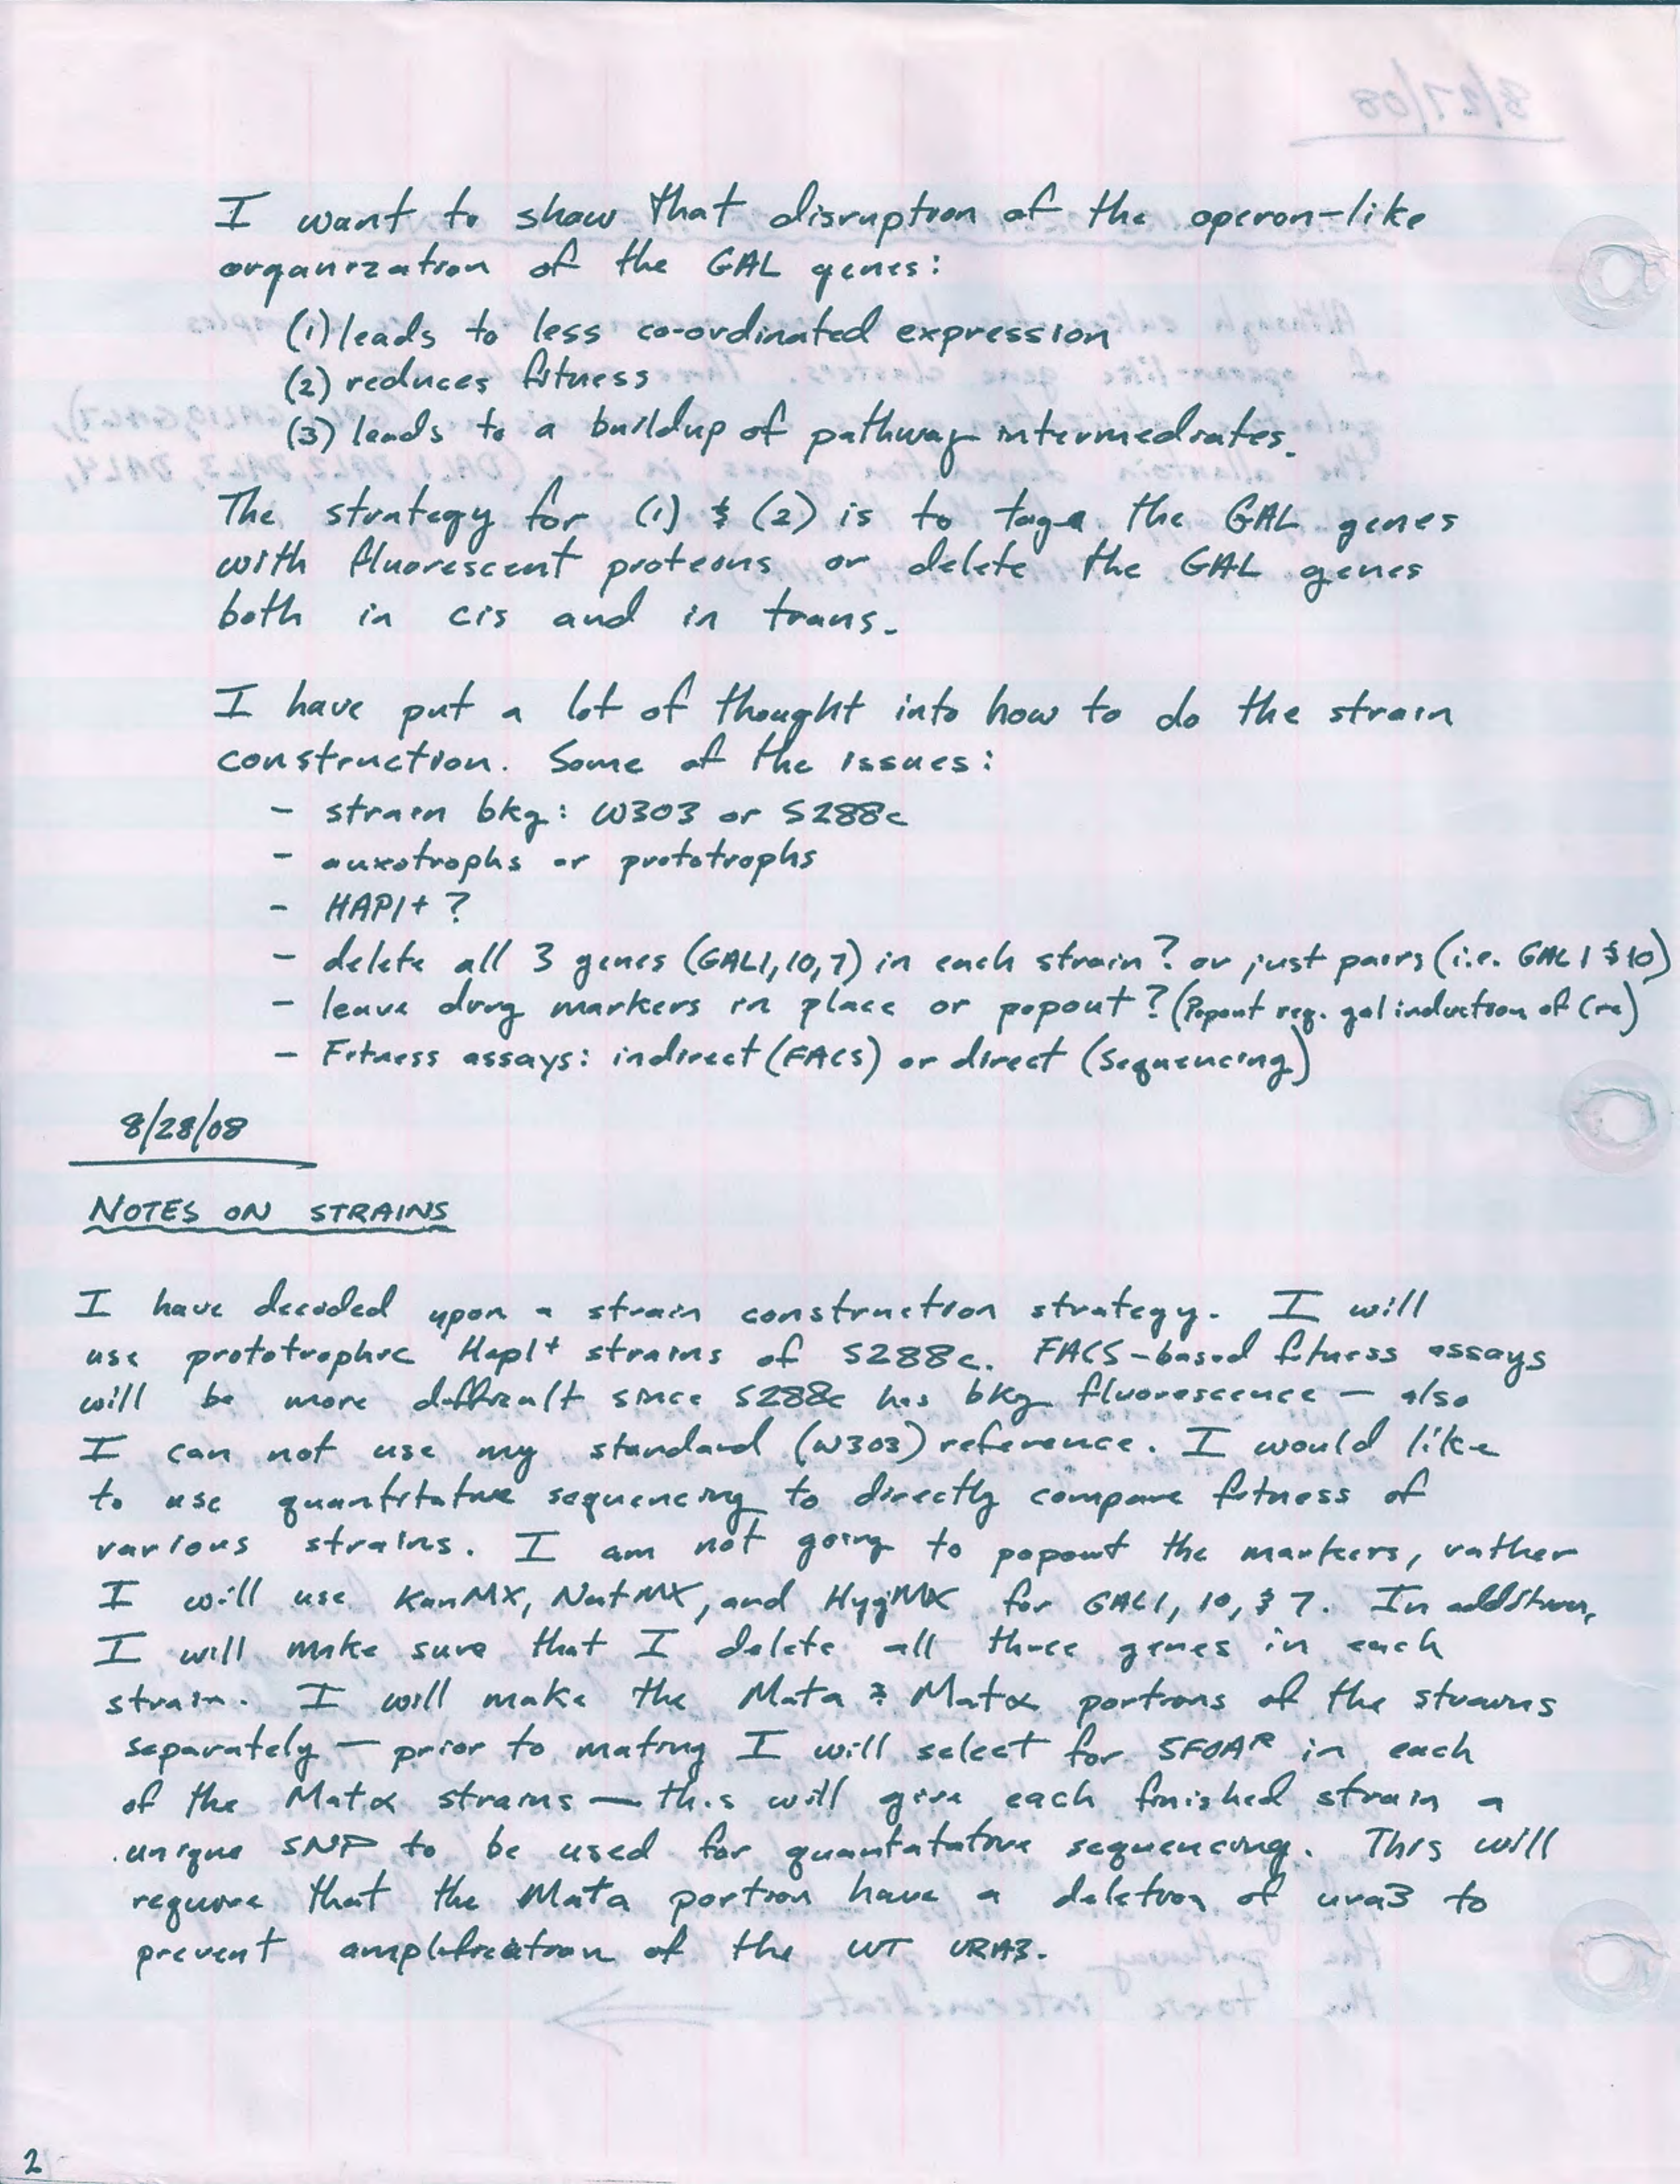 I want to show that disruption of the operon-like
organization of the GAL genes:
(1) leads to less co-ordinated expression
(2) reduces fitness
(3) leads to a buildup of pathway intermediates.
The strategy for (1) & (2) is to tag the GAL genes
with fluorescent proteins or delete the GAL genes
both in cis and in trans.
I have put a lot of thought into how to do the strain
construction. Some of the issues:
- strain bkg: W303 or S288c
- auxotrophs or prototrophs
- HAP1+ ?
- delete all 3 genes (GAL1,10,7) in each strain? or just pairs (i.e. GAL1 & 10)
- leave drug markers in place or popout? (Popout req. gal induction of Cre)
- Fitness assays: indirect (FACS) or direct (Sequencing)
8/28/08
NOTES ON STRAINS
I have decided upon a strain construction strategy. I will
use prototrophic Hap1+ strains of S288c. FACS-based fitness assays
will be more difficult since S288c has bkg fluorescence – also
I can not use my standard (W303) reference. I would like
to use quantitative sequencing to directly compare fitness of
various strains. I am not going to popout the markers, rather
I will use KanMX, NatMX, and HygMX for GAL1, 10, & 7. In addition,
I will make sure that I delete all three genes in each
strain. I will make the Mata & Matα portions of the strains
separately – prior to mating I will select for 5FOAR in each
of the Matα strains – this will give each finished strain a
unique SNP to be used for quantatative sequencing. This will
require that the Mata portion have a deletion of ura3 to
prevent amplification of the WT URA3.
2